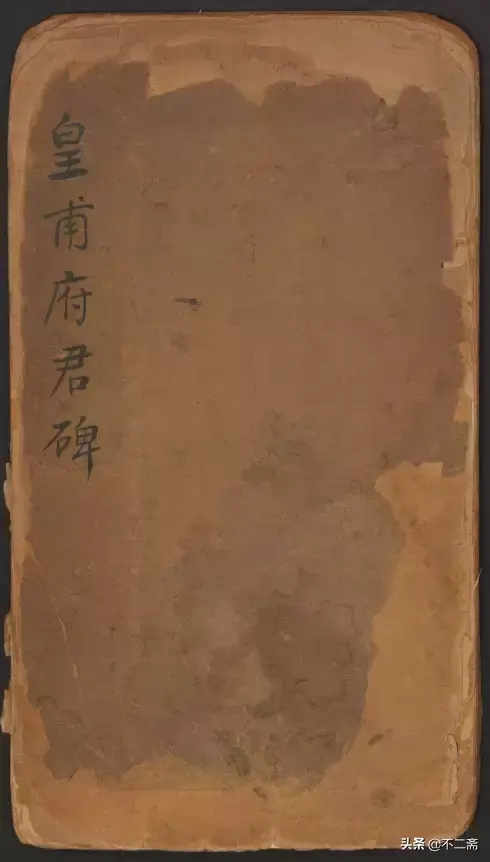 皇甫府君碑
头条@不二斋